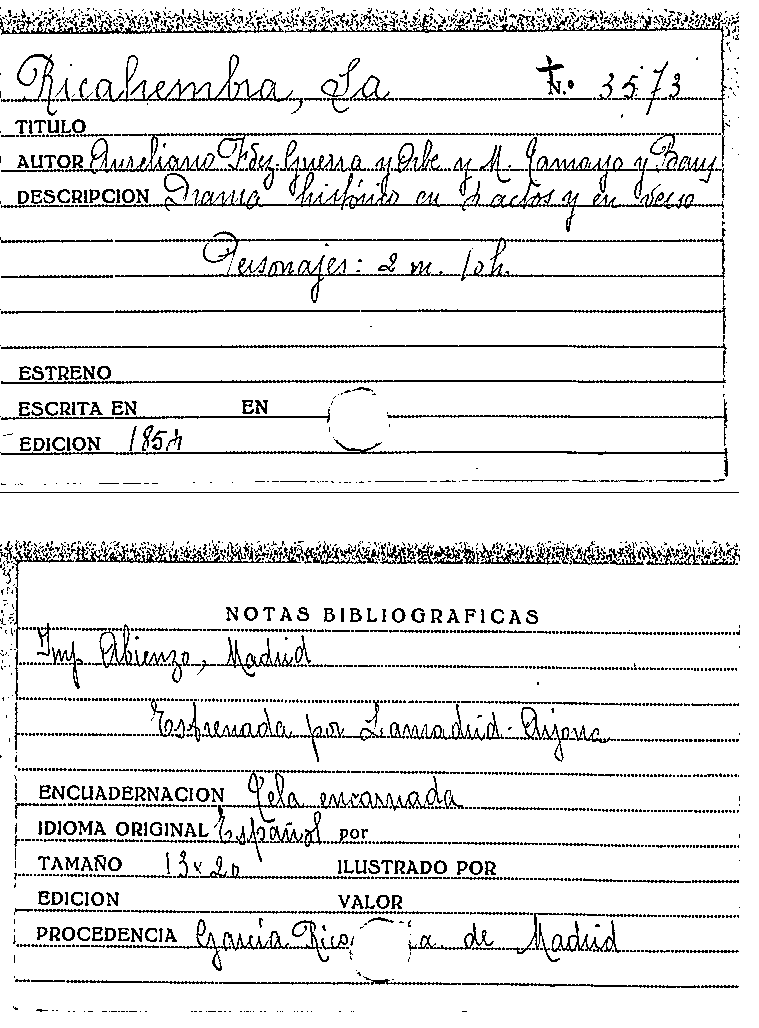 Ricahembra, La N.º 3573
TITULO
AUTOR Aureliano Fdez-Guerra y Orbe y M. Tamayo y Baus
DESCRIPCION Drama histórico en 4 actos y en verso
Personajes: 2 m. 10h.
ESTRENO
ESCRITA EN EN
EDICION 1854
NOTAS BIBLIOGRAFICAS
Imp. Abienzo, Madrid
Estrenada por Lamadrid-Arjona
ENCUADERNACION Tela encarnada
IDIOMA ORIGINAL Español por
TAMAÑO 13x20 ILUSTRADO POR
EDICION VALOR
PROCEDENCIA García Rico, de Madrid